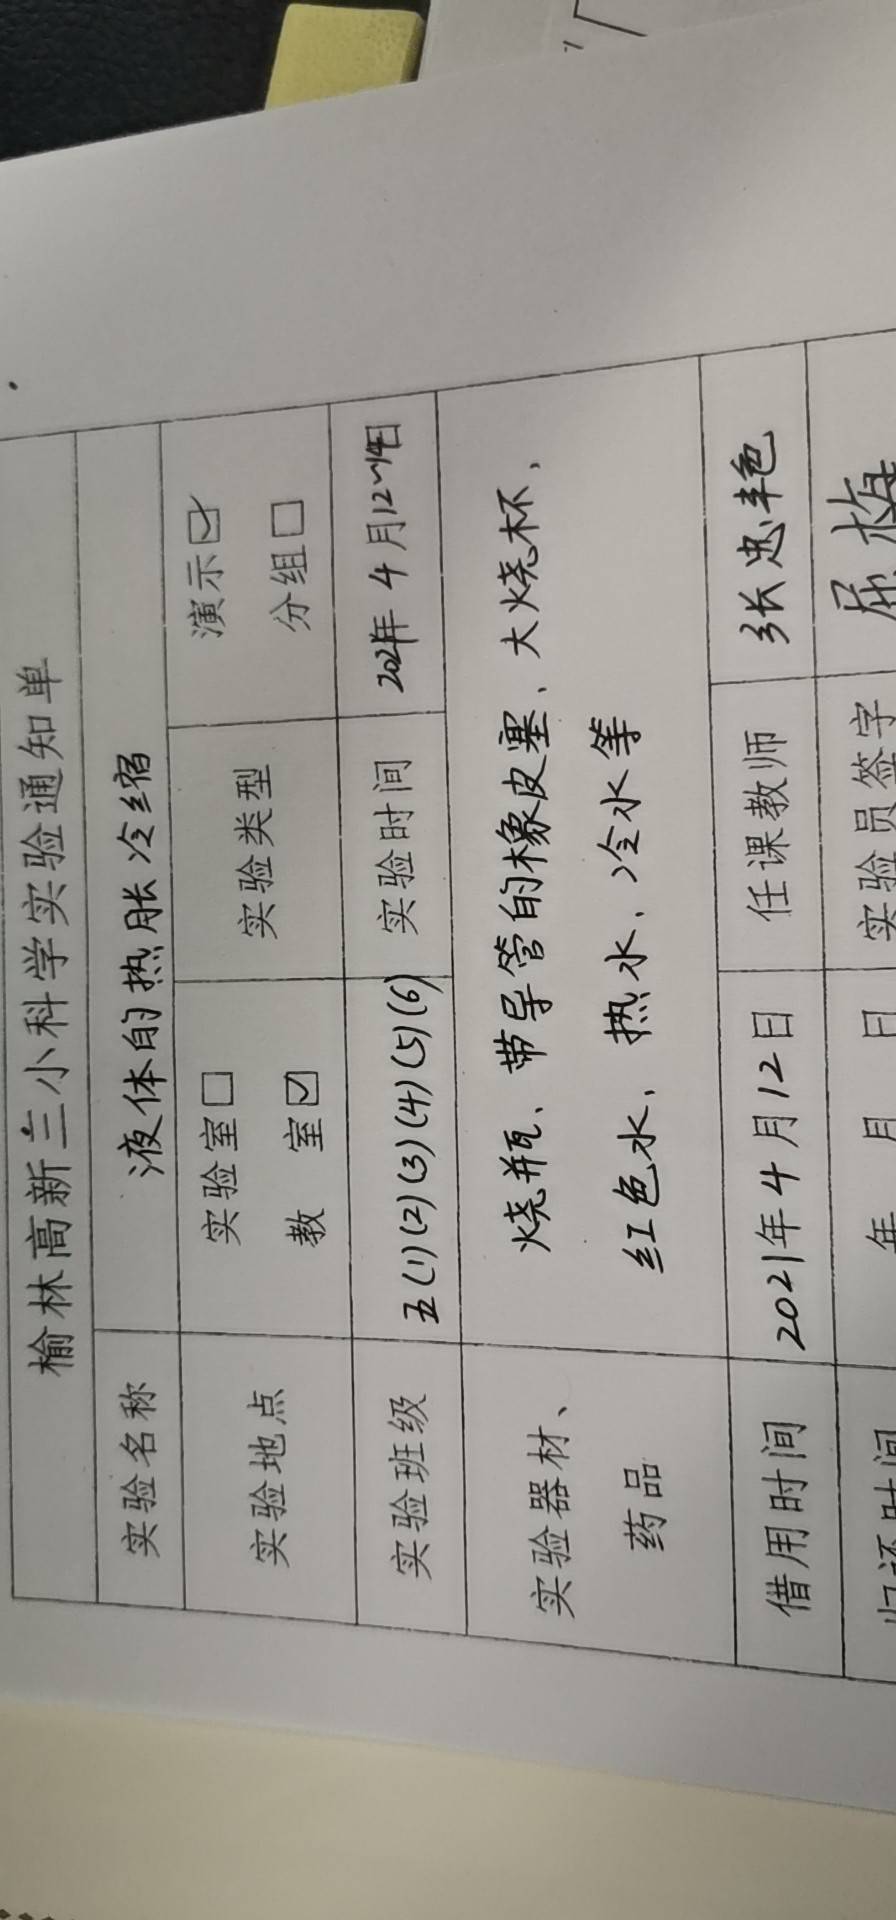 榆林高新三小科学实验通知单
实验名称 液体的热胀冷缩
实验地点 实验室□ 教 室☑ 实验类型 演示☑ 分组□
实验班级 五(1)(2)(3)(4)(5)(6) 实验时间 2021年4月12~14日
实验器材、药品 烧瓶、带导管的橡皮塞、大烧杯、
红色水、热水、冷水等
借用时间 2021年4月12日 任课教师 张忠艳
归还时间 年 月 日 实验员签字 屈梅